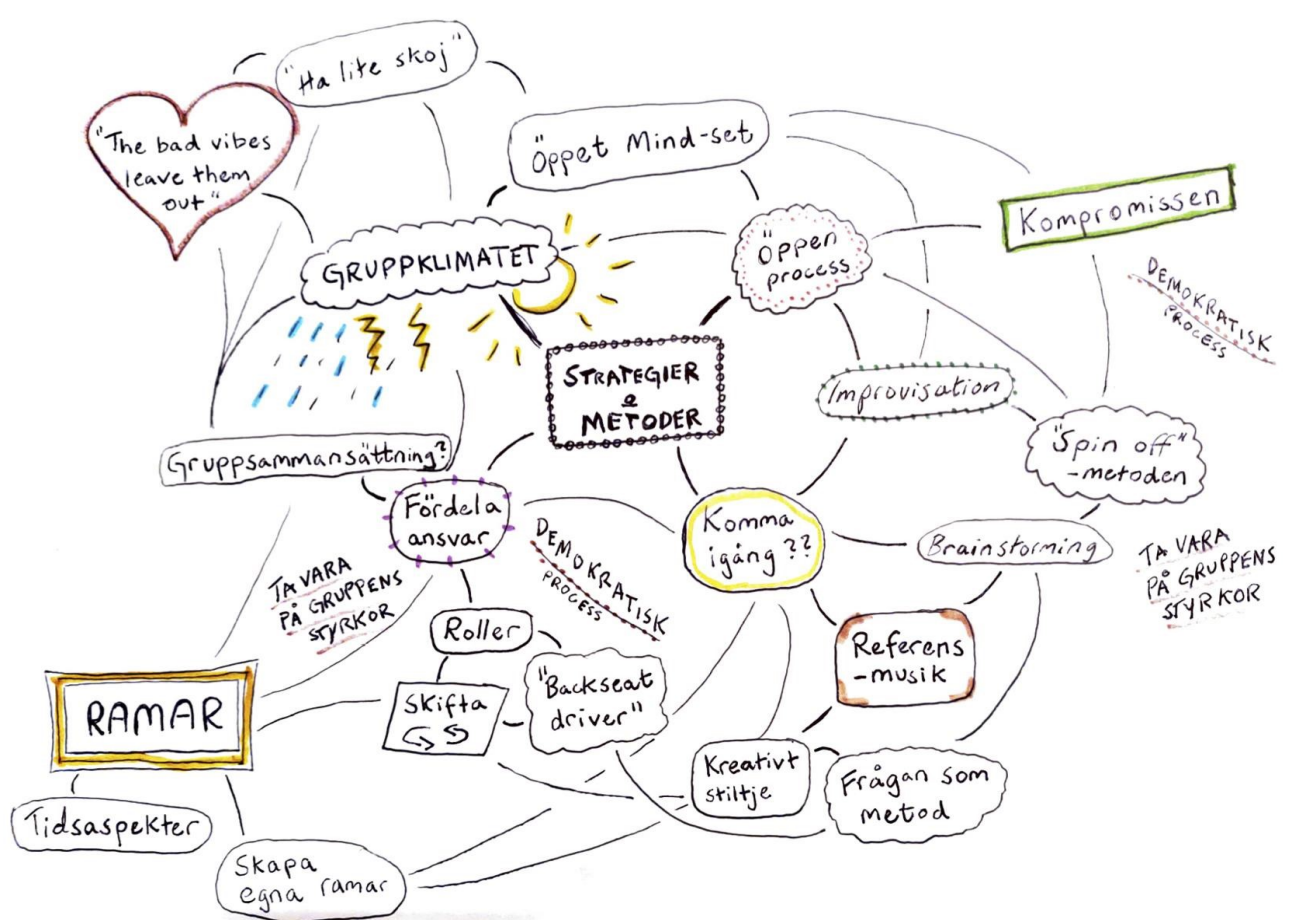 "Ha lite skoj"
"The bad vibes
leave them
out"
"Öppet Mind-set
Kompromissen
GRUPPKLIMATET
"Öppen
process
DEMOKRATISK
PROCESS
STRATEGIER
o
METODER
Improvisation
"Spin off"
-metoden
Gruppsammansättning?
Fördela
ansvar
Komma
igång??
Brainstorming
DEMOKRATISK
PROCESS
TA VARA
PÅ GRUPPENS
STYRKOR
TA VARA
PÅ GRUPPENS
STYRKOR
Roller
Referens
-musik
RAMAR
Skifta
"Backseat
driver"
Kreativt
stiltje
Frågan som
metod
Tidsaspekter
Skapa
egna ramar